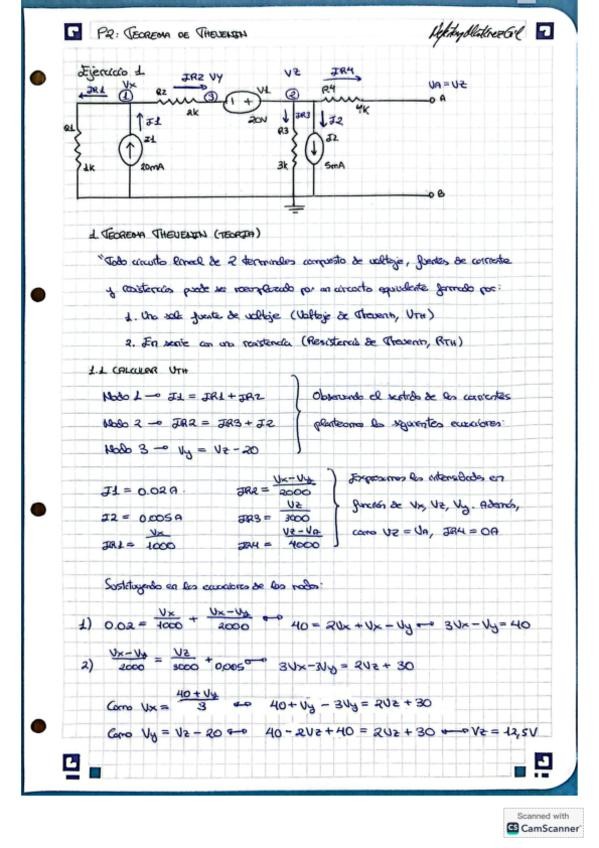 P2: TEOREMA DE THEVENIN
Ejercicio 1
IR1 Vx IR2 Vy V1 VZ IR4 VA = VZ
1 R2 3 2 R4 A
2k 20V 4K
R1 I1 I1 R3 IR3 I2 I2
1k 20mA 3k 5mA
B
1. TEOREMA THEVENIN (TEORÍA)
"Todo circuito lineal de 2 terminales compuesto de voltaje, fuentes de corriente
y resistencias puede ser reemplazado por un circuito equivalente formado por:
1. Una sola fuente de voltaje (Voltaje de Thevenin, VTH)
2. En serie con una resistencia (Resistencia de Thevenin, RTH)
1.1 CALCULAR VTH
Nodo 1 → I1 = IR1 + IR2
Nodo 2 → IR2 = IR3 + I2
Nodo 3 → Vy = VZ - 20
Observando el sentido de las corrientes
planteamos las siguientes ecuaciones:
I1 = 0.02A. IR2 = Vx-Vy/2000
I2 = 0.005A IR3 = VZ/3000
IR1 = Vx/1000 IR4 = VZ-VA/4000
Expresamos las intensidades en
función de Vx, VZ, Vy. Además,
como VZ = VA, IR4 = 0A
Sustituyendo en las ecuaciones de los nodos:
1) 0.02 = Vx/1000 + Vx-Vy/2000 ↔ 40 = 2Vx + Vx - Vy ↔ 3Vx - Vy = 40
2) Vx-Vy/2000 = VZ/3000 + 0,005 ↔ 3Vx - 3Vy = 2VZ + 30
Como Vx = 40+Vy/3 ↔ 40 + Vy - 3Vy = 2VZ + 30
Como Vy = VZ - 20 ↔ 40 - 2VZ + 40 = 2VZ + 30 ↔ VZ = 12,5V
Scanned with
CS CamScanner